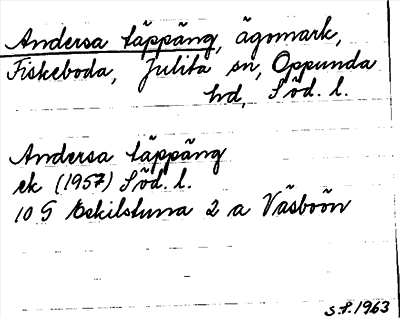 Andersa täppäng, ägomark,
Fiskeboda, Julita sn, Oppunda
hd, Söd. l.
Andersa täppäng
ek (1957) Söd. l.
10 G Eskilstuna 2 a Väsbön
S.P. 1963